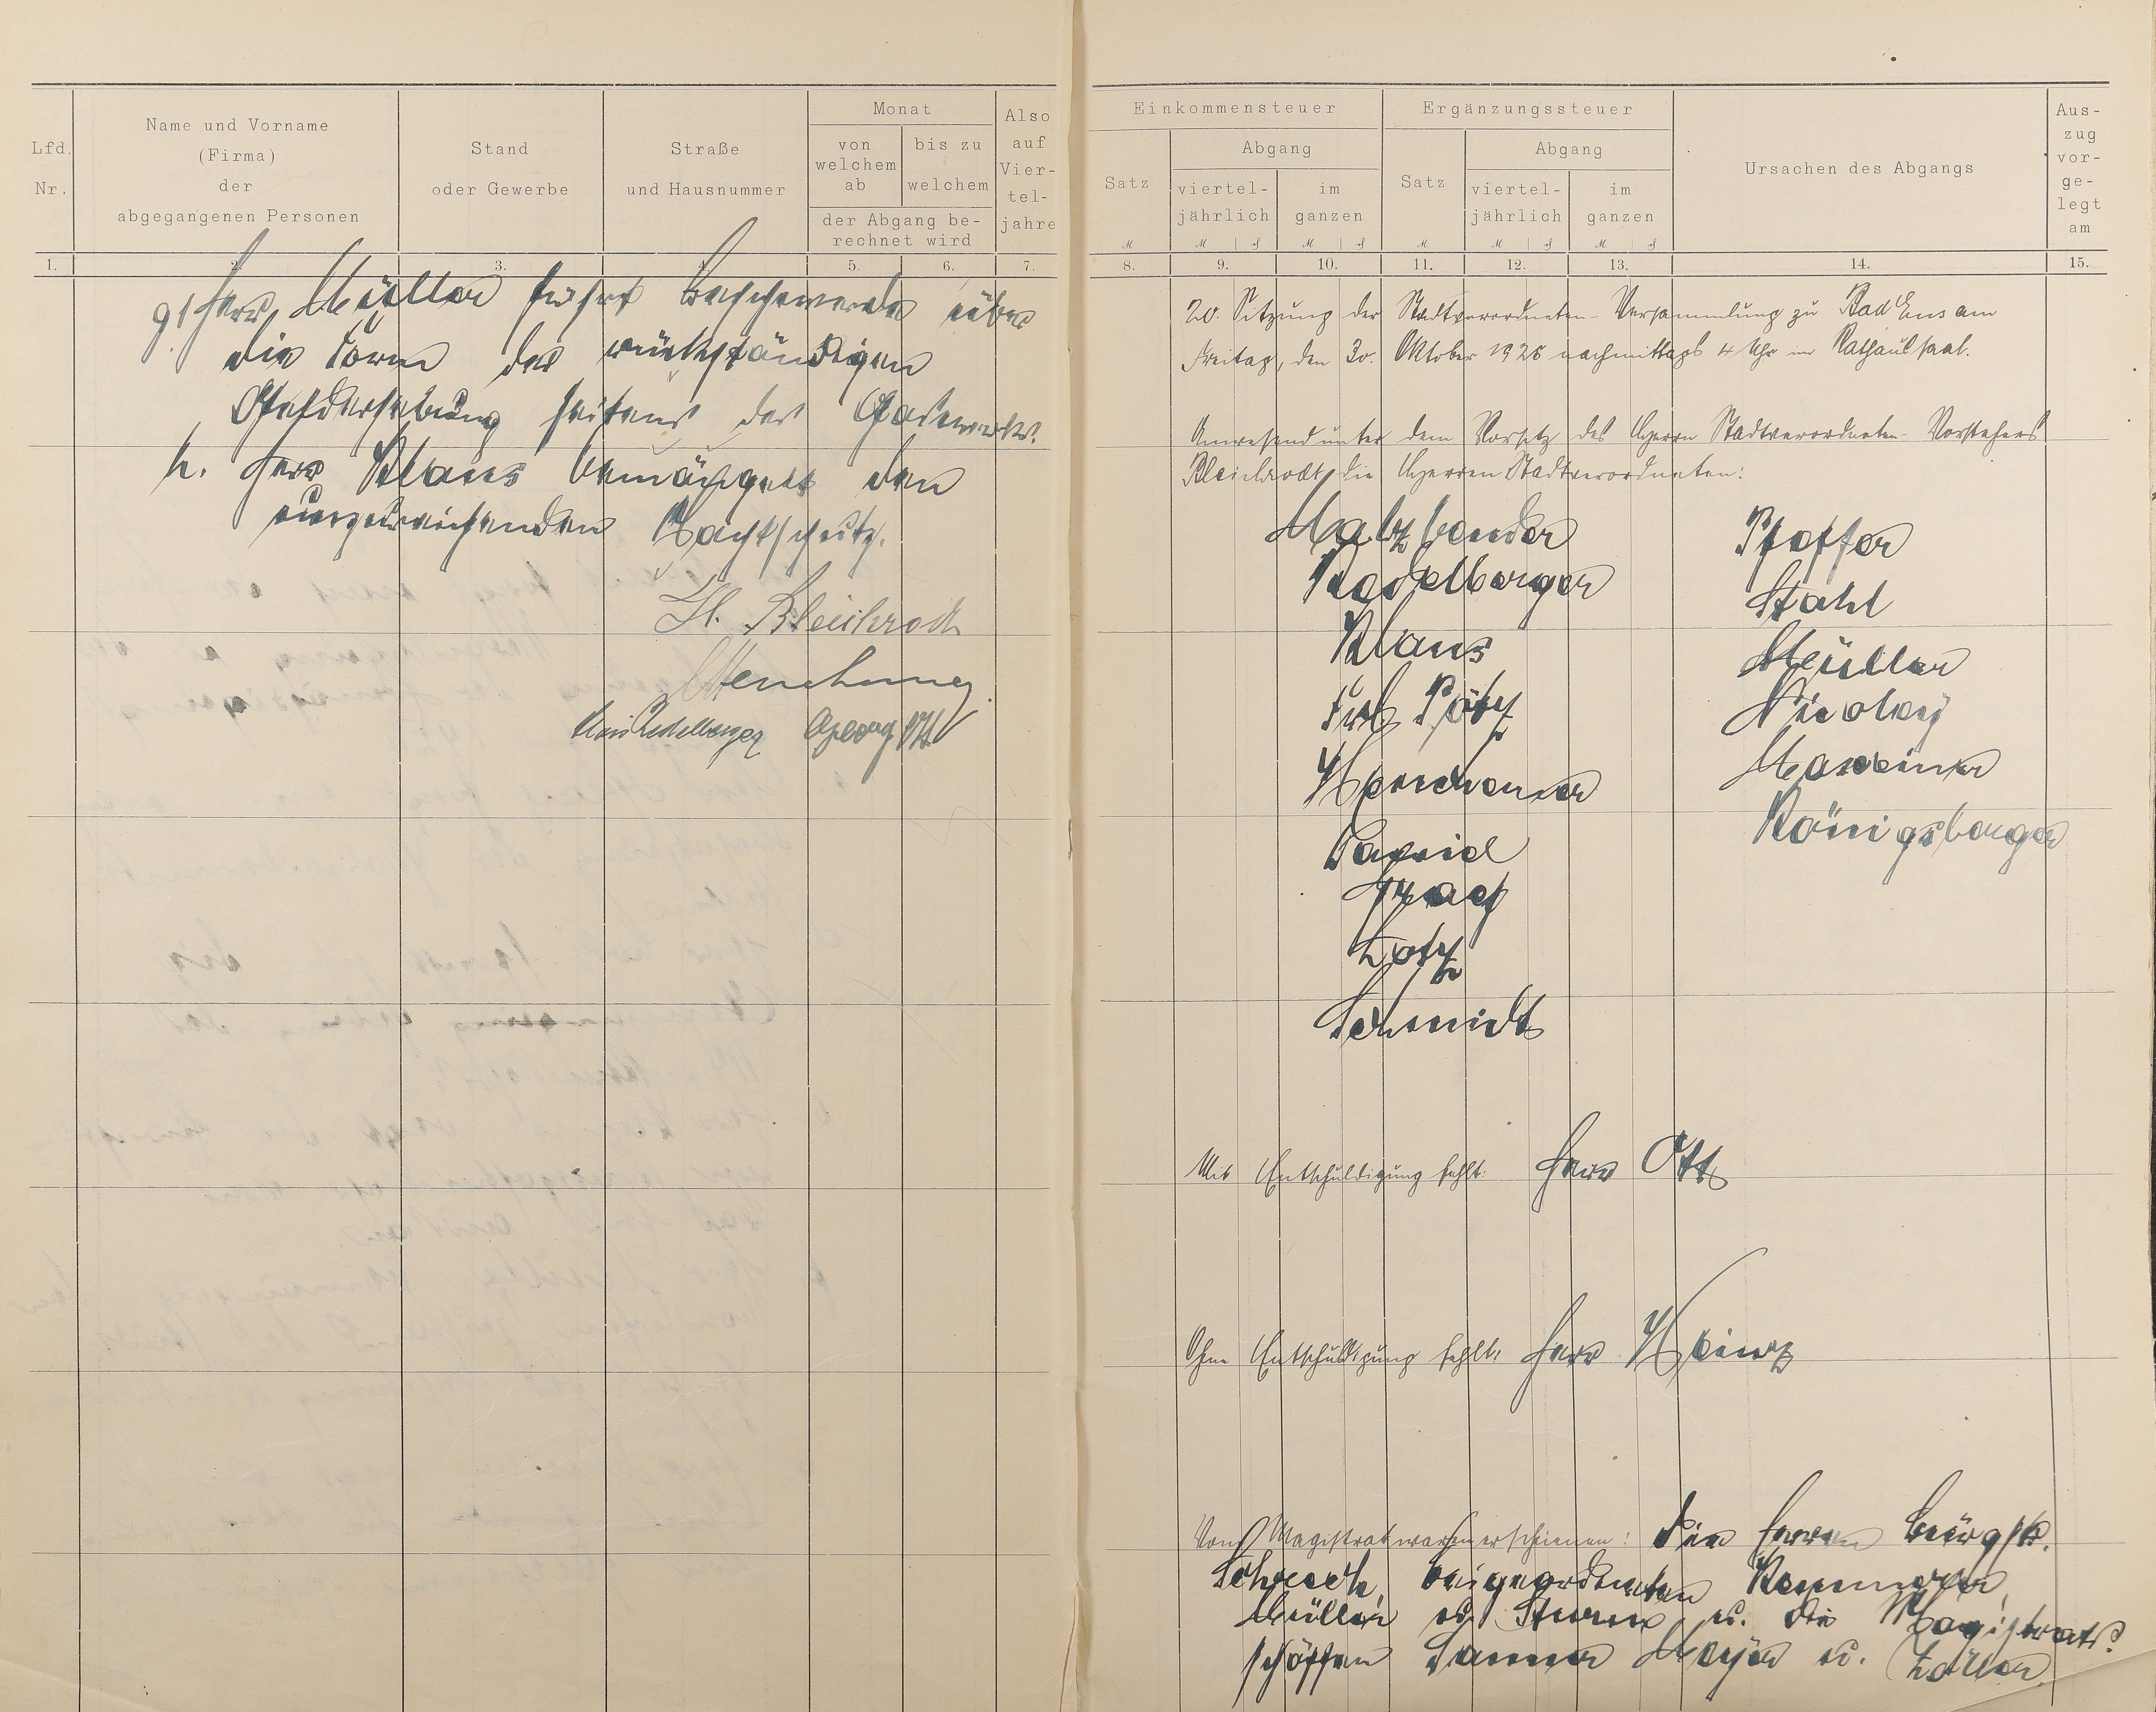 Lfd. Nr.
Name und Vorname
(Firma)
der
abgegangenen Personen
Stand
oder Gewerbe
Straße
und Hausnummer
Monat
von welchem ab
bis zu welchem
der Abgang be-
rechnet wird
Also auf Vier-tel-jahre
1. 2. 3. 4. 5. 6. 7.
g) Herr Müller führt Beschwerde über
die Form der rückständigen
Gelderhebung seitens des Gaswerks.
h. Herr Klaus bemängelt den
unzureichenden Nachtschutz.
H. Bleibrodt
Georg Ott
Einkommensteuer
Satz
Abgang
viertel-
jährlich
im
ganzen
Ergänzungssteuer
Satz
Abgang
viertel-
jährlich
im
ganzen
Ursachen des Abgangs
Aus-
zug
vor-
ge-
legt
am
8. 9. 10. 11. 12. 13. 14. 15.
20. Sitzung der Stadtverordneten-Versammlung zu Bad Ems am
Freitag, den 30. Oktober 1925 nachmittags 4 Uhr im Rathaussaal.
Anwesend unter dem Vorsitz des Herrn Stadtverordneten-Vorstehers
Bleibrodt, die Herren Stadtverordneten:
Malzbender
Klaus
David
Graef
Lotz
Schmidt
Pfeffer
Stahl
Müller
Nicolay
Maxeiner
Königsberger
Mit Entschuldigung fehlt: Herr Ott
Ohne Entschuldigung fehlt: Herr Heinz
Vom Magistrat waren erschienen: Die Herren Bürgstr.
Schreck, Beigeordneten Kemmerer
Müller Sturm u. die Magistrats-
schöffen Sanner Meyer u. Zöller